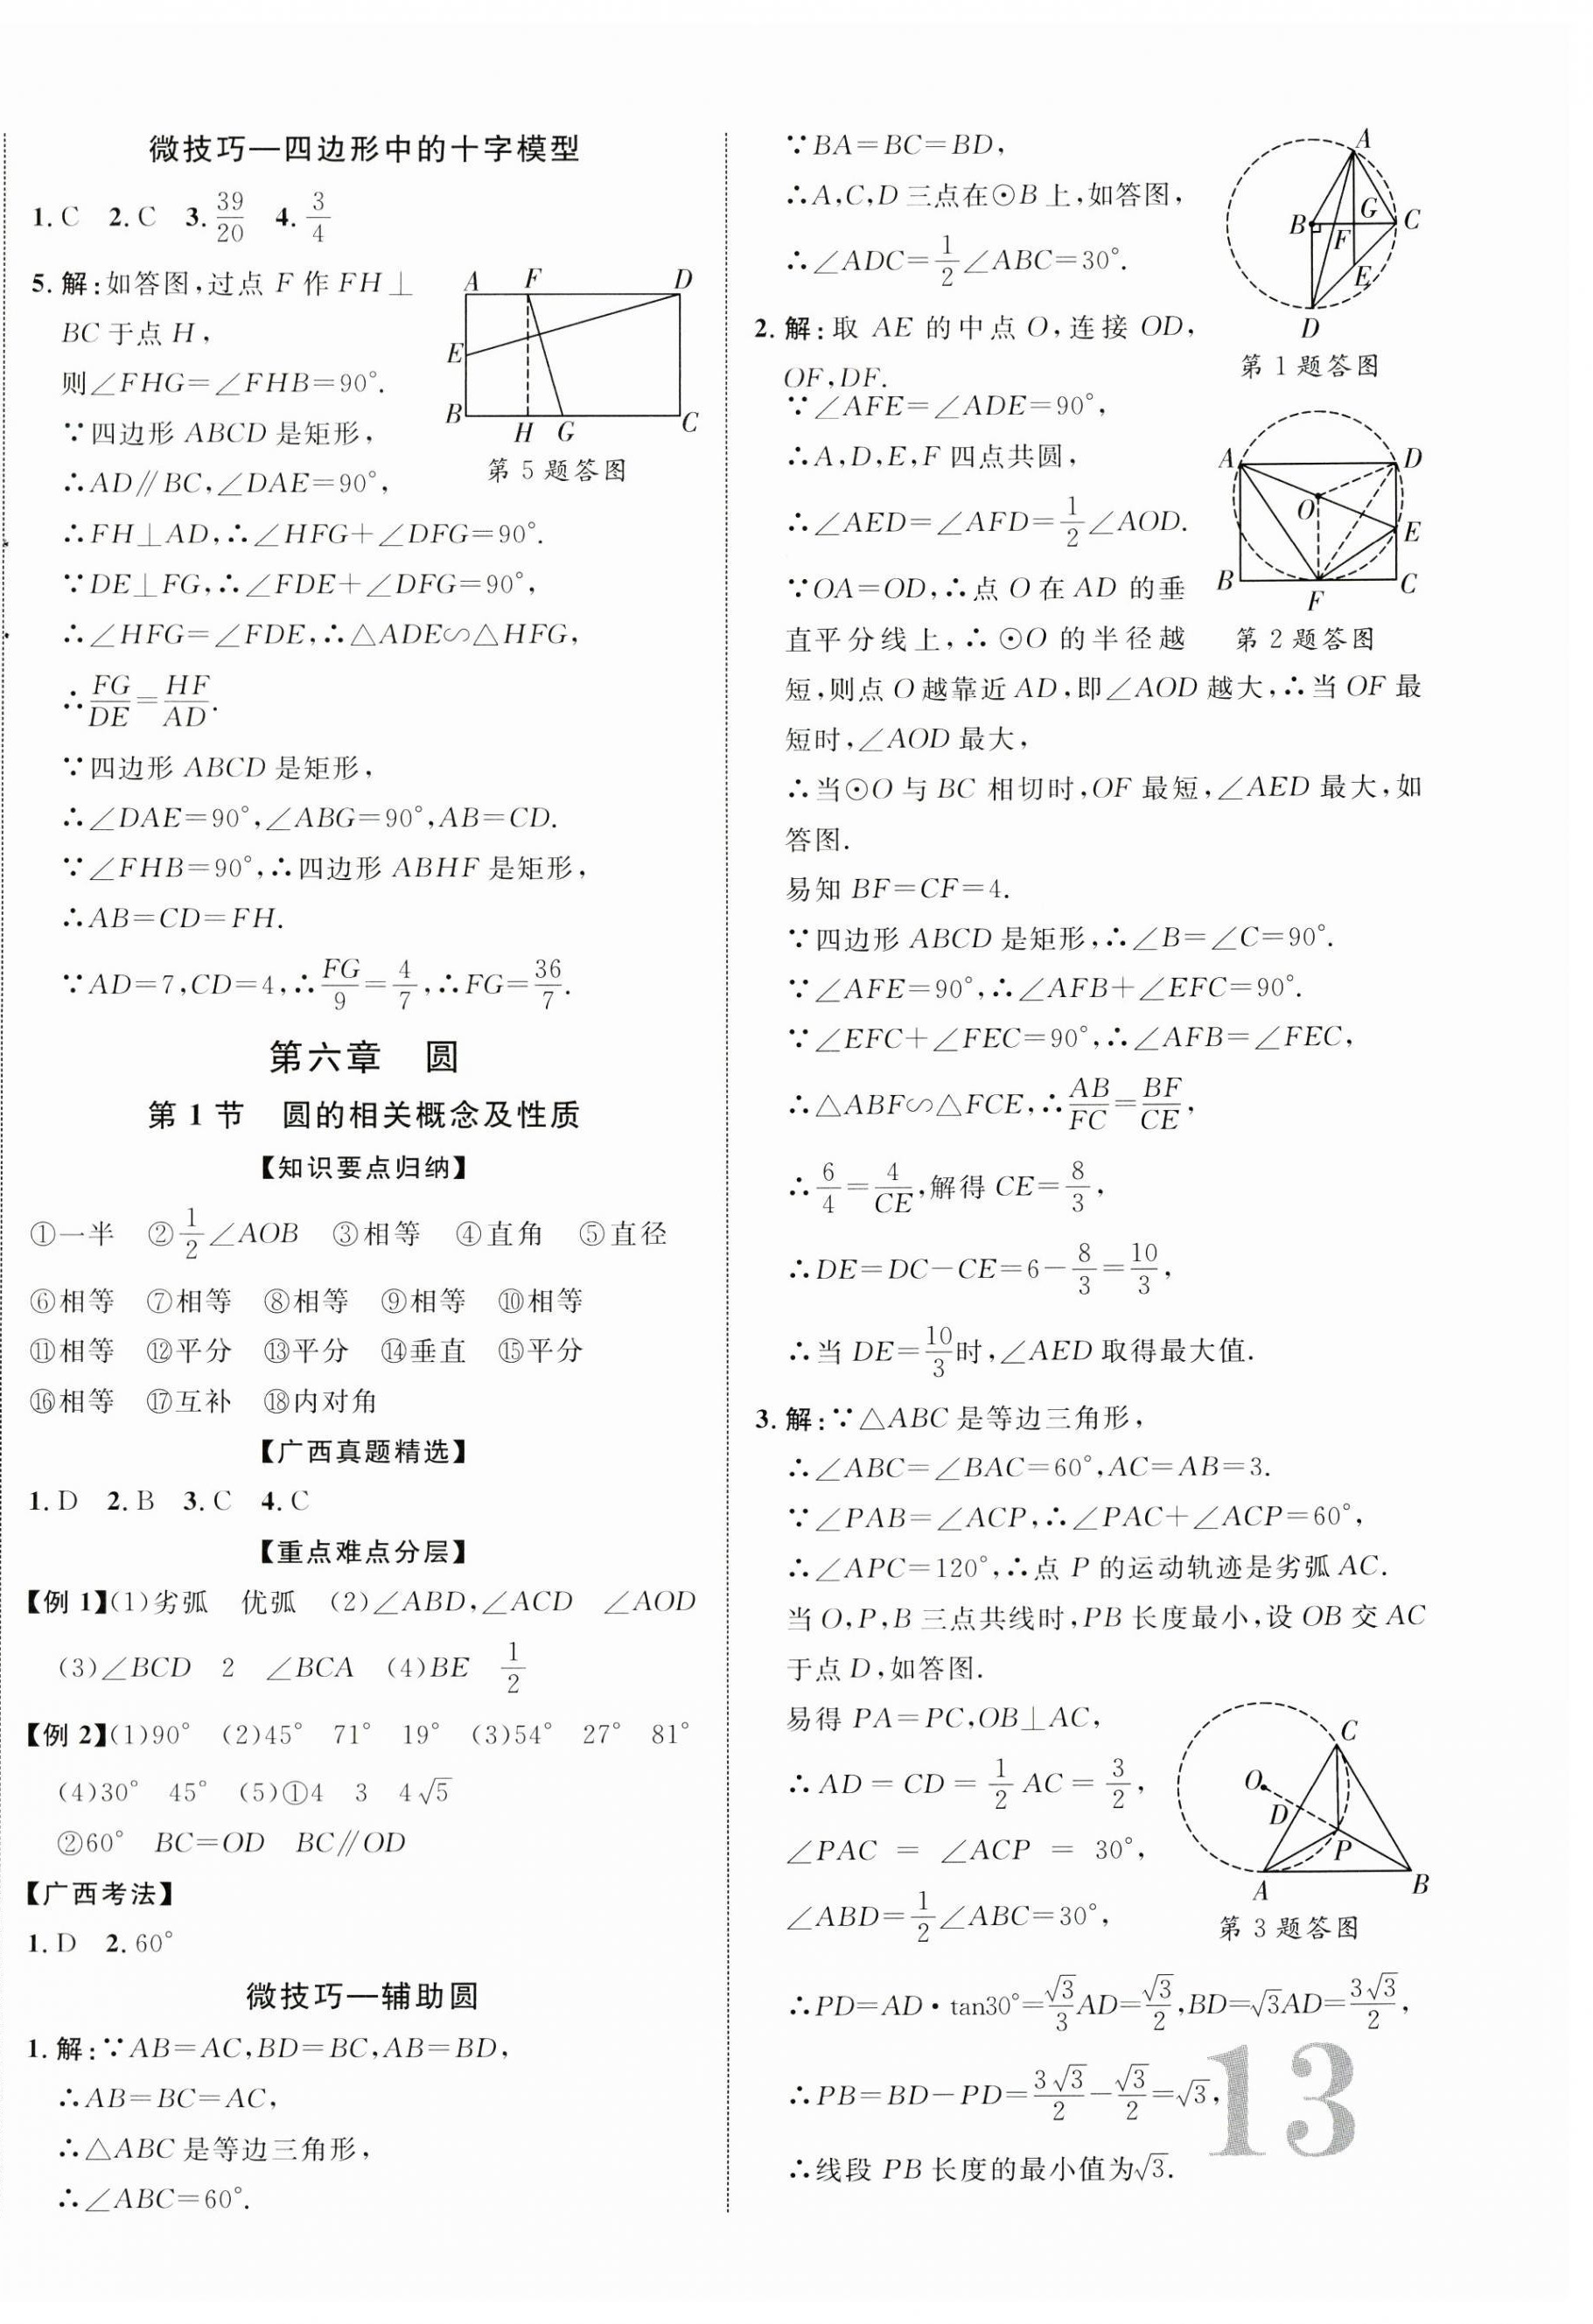 微技巧—四边形中的十字模型
1.C 2.C 3.39/20 4.3/4
5.解:如答图,过点 F 作 FH⊥
BC 于点 H,
则∠FHG=∠FHB=90°.
∵四边形 ABCD 是矩形,
∴AD∥BC,∠DAE=90°,
∴FH⊥AD,∴∠HFG+∠DFG=90°.
∵DE⊥FG,∴∠FDE+∠DFG=90°,
∴∠HFG=∠FDE,∴△ADE∽△HFG,
∴FG/DE=HF/AD.
∵四边形 ABCD 是矩形,
∴∠DAE=90°,∠ABG=90°,AB=CD.
∵∠FHB=90°,∴四边形 ABHF 是矩形,
∴AB=CD=FH.
∵AD=7,CD=4,∴FG/9=4/7,∴FG=36/7.
A F D
E
B H G C
第 5 题答图
第六章 圆
第 1 节 圆的相关概念及性质
【知识要点归纳】
①一半 ②1/2∠AOB ③相等 ④直角 ⑤直径
⑥相等 ⑦相等 ⑧相等 ⑨相等 ⑩相等
⑪相等 ⑫平分 ⑬平分 ⑭垂直 ⑮平分
⑯相等 ⑰互补 ⑱内对角
【广西真题精选】
1.D 2.B 3.C 4.C
【重点难点分层】
【例 1】(1)劣弧 优弧 (2)∠ABD,∠ACD ∠AOD
(3)∠BCD 2 ∠BCA (4)BE 1/2
【例 2】(1)90° (2)45° 71° 19° (3)54° 27° 81°
(4)30° 45° (5)①4 3 4√5
②60° BC=OD BC∥OD
【广西考法】
1.D 2.60°
微技巧—辅助圆
1.解:∵AB=AC,BD=BC,AB=BD,
∴AB=BC=AC,
∴△ABC 是等边三角形,
∴∠ABC=60°.
∵BA=BC=BD,
∴A,C,D 三点在⊙B 上,如答图,
∴∠ADC=1/2∠ABC=30°.
A
B G C
F
E
D
第 1 题答图
2.解:取 AE 的中点 O,连接 OD,
OF,DF.
∵∠AFE=∠ADE=90°,
∴A,D,E,F 四点共圆,
∴∠AED=∠AFD=1/2∠AOD.
∵OA=OD,∴点 O 在 AD 的垂
直平分线上,∴⊙O 的半径越
短,则点 O 越靠近 AD,即∠AOD 越大,∴当 OF 最
短时,∠AOD 最大,
∴当⊙O 与 BC 相切时,OF 最短,∠AED 最大,如
答图.
A D
O
E
B F C
第 2 题答图
易知 BF=CF=4.
∵四边形 ABCD 是矩形,∴∠B=∠C=90°.
∵∠AFE=90°,∴∠AFB+∠EFC=90°.
∵∠EFC+∠FEC=90°,∴∠AFB=∠FEC,
∴△ABF∽△FCE,∴AB/FC=BF/CE,
∴6/4=4/CE,解得 CE=8/3,
∴DE=DC−CE=6−8/3=10/3,
∴当 DE=10/3时,∠AED 取得最大值.
3.解:∵△ABC 是等边三角形,
∴∠ABC=∠BAC=60°,AC=AB=3.
∵∠PAB=∠ACP,∴∠PAC+∠ACP=60°,
∴∠APC=120°,∴点 P 的运动轨迹是劣弧 AC.
当 O,P,B 三点共线时,PB 长度最小,设 OB 交 AC
于点 D,如答图.
易得 PA=PC,OB⊥AC,
∴AD=CD=1/2 AC=3/2,
∠PAC=∠ACP=30°,
∠ABD=1/2∠ABC=30°,
C
O
D
P
A B
第 3 题答图
∴PD=AD·tan30°=√3/3AD=√3/2,BD=√3AD=3√3/2,
∴PB=BD−PD=3√3/2−√3/2=√3,
∴线段 PB 长度的最小值为√3.
13